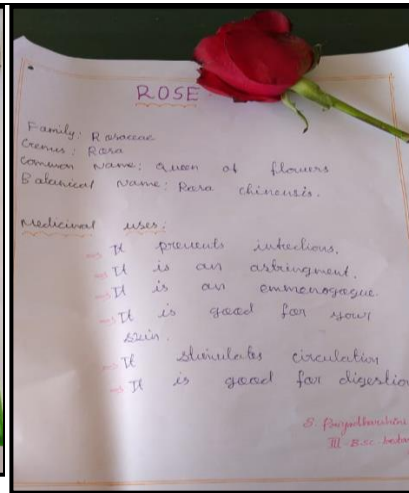 ROSE
Family: Rosaceae
Genus: Rosa
Common Name: Queen of flowers
Botanical Name: Rosa chinensis.
Medicinal uses:
→ It prevents infections.
→ It is an astringment.
→ It is an emmenogogue.
→ It is good for your
skin.
→ It stimulates circulation
→ It is good for digestion
III - B.Sc.